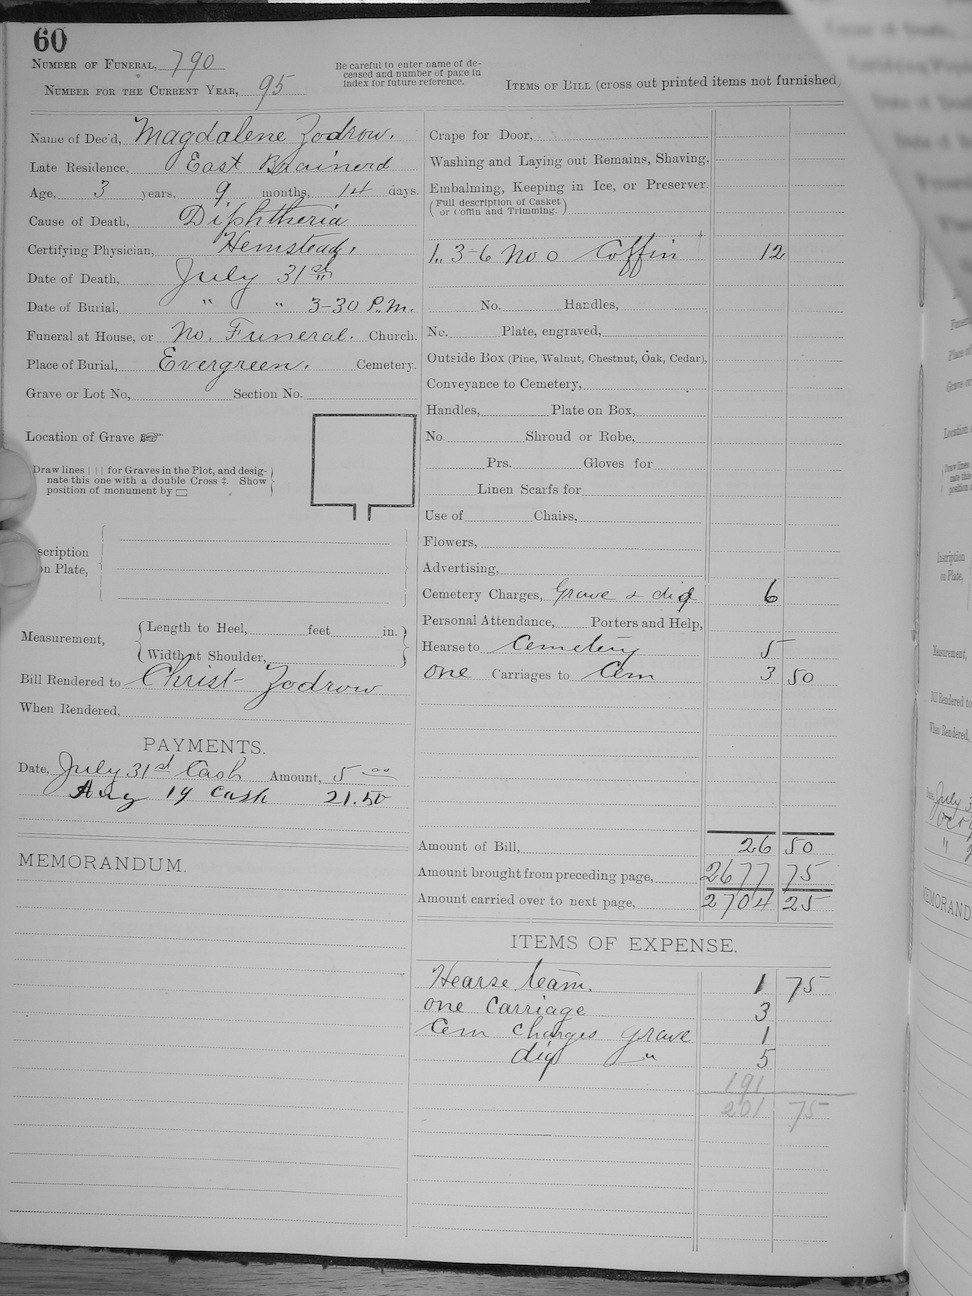 60
NUMBER OF FUNERAL, 790
NUMBER FOR THE CURRENT YEAR, 95
Be careful to enter name of de-
ceased and number of page in
index for future reference.
ITEMS OF BILL (cross out printed items not furnished
Name of Dec'd, Magdalene Zodrow.
Late Residence, East Brainerd
Age, 3 years, 9 months, 14 days.
Cause of Death, Diphtheria
Certifying Physician, Hemstead,
Date of Death, July 31st
Date of Burial, " " 3-30 P.M.
Funeral at House, or No. Funeral. Church.
Place of Burial, Evergreen. Cemetery.
Grave or Lot No, Section No.
Location of Grave ☞
Draw lines | | | for Graves in the Plot, and desig-
nate this one with a double Cross ‡. Show
position of monument by ▭
scription
on Plate,
Measurement,
Length to Heel, feet in.
Width at Shoulder,
Bill Rendered to Christ Zodrow
When Rendered,
PAYMENTS.
Date, July 31st Cash Amount, 5 00
Aug 19 Cash 21.50
MEMORANDUM.
Crape for Door,
Washing and Laying out Remains, Shaving,
Embalming, Keeping in Ice, or Preserver.
(Full description of Casket
or Coffin and Trimming.)
1,, 3-6 No 0 Coffin 12
No. Handles,
No. Plate, engraved,
Outside Box (Pine, Walnut, Chestnut, Oak, Cedar),
Conveyance to Cemetery,
Handles, Plate on Box,
No. Shroud or Robe,
Prs. Gloves for
Linen Scarfs for
Use of Chairs,
Flowers,
Advertising,
Cemetery Charges, Grave & dig 6
Personal Attendance, Porters and Help,
Hearse to Cemetery 5
one Carriages to Cem 3 50
Amount of Bill, 26 50
Amount brought from preceding page, 2677 75
Amount carried over to next page, 2704 25
ITEMS OF EXPENSE.
Hearse team. 1 75
one Carriage 3
Cem Charges grave 1
dig " 5
191
201 75